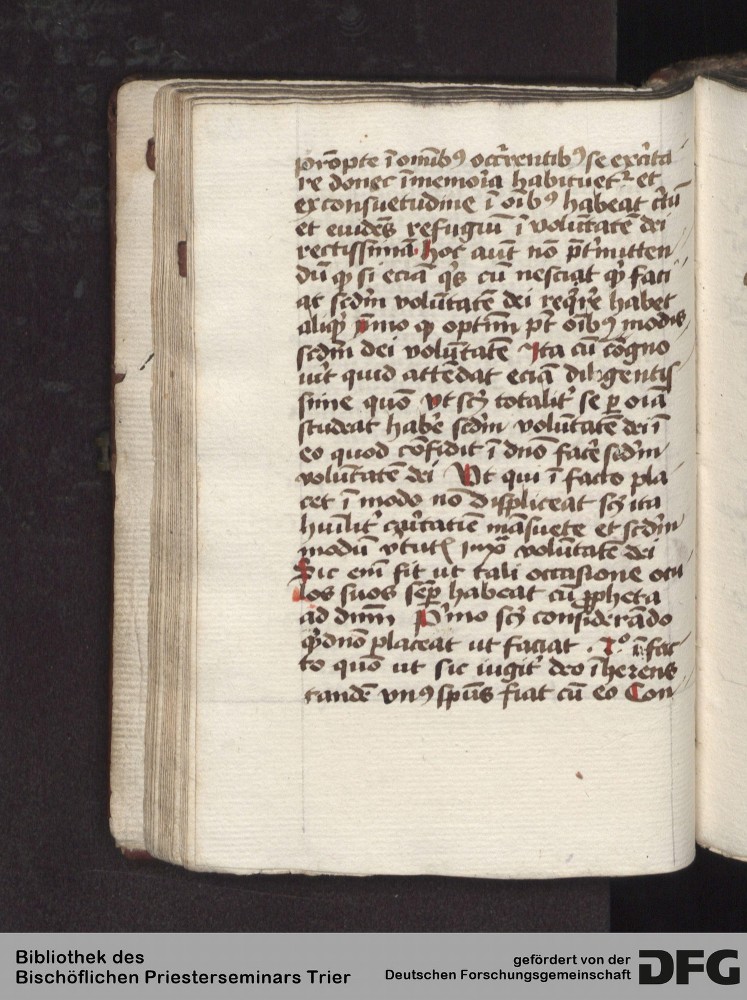 prōpte ī omībꝰ occ̄rentibꝰ se excita
re donec ī memoīa habituet᷑ et
ex consuetudine ī oībꝰ habeat c̄tū
et euidēs refugiū ī volūtatē dei
rectissimā hoc aūt nō p̄t̄mitten
dū ꝙ si eciā q̄s cū nesciat ꝙ faci
at scd̄m volūtatē dei req̄re habet
aliq̄ p̄mo ꝙ optīm pt̄ oībꝰ modis
scdm̄ dei volūtatē Ita cū cogno
uīt quid attēdat eciā diligentis
sime quō vt scꝫ totalit᷑ se ꝑ oīa
studeat hab̄e scd̄m volūtatē dei ī
eo quod cōfidit ī dnō fac̄e scd̄m
volūtatē dei Ut qui ī facto pla
cet ī modo nō displiceat scꝫ ita
hūilit᷑ caritatiē māsuete et scd̄m
modū v̄tut̄ ỹmo volūtatē dei
Sic eīm fit ut tali occasione ocu
los suos semꝑ habeat cū ꝓpheta
ad dūm P̄mo scꝫ considerādo
q̄d dnō placeat ut faciat . 2º ī fac
to quō ut sic iugit᷑ deo īherens
tandē vnꝰ sp̄us fiat cū eo Con
Bibliothek des
Bischöflichen Priesterseminars Trier
gefördert von der
Deutschen Forschungsgemeinschaft
DFG